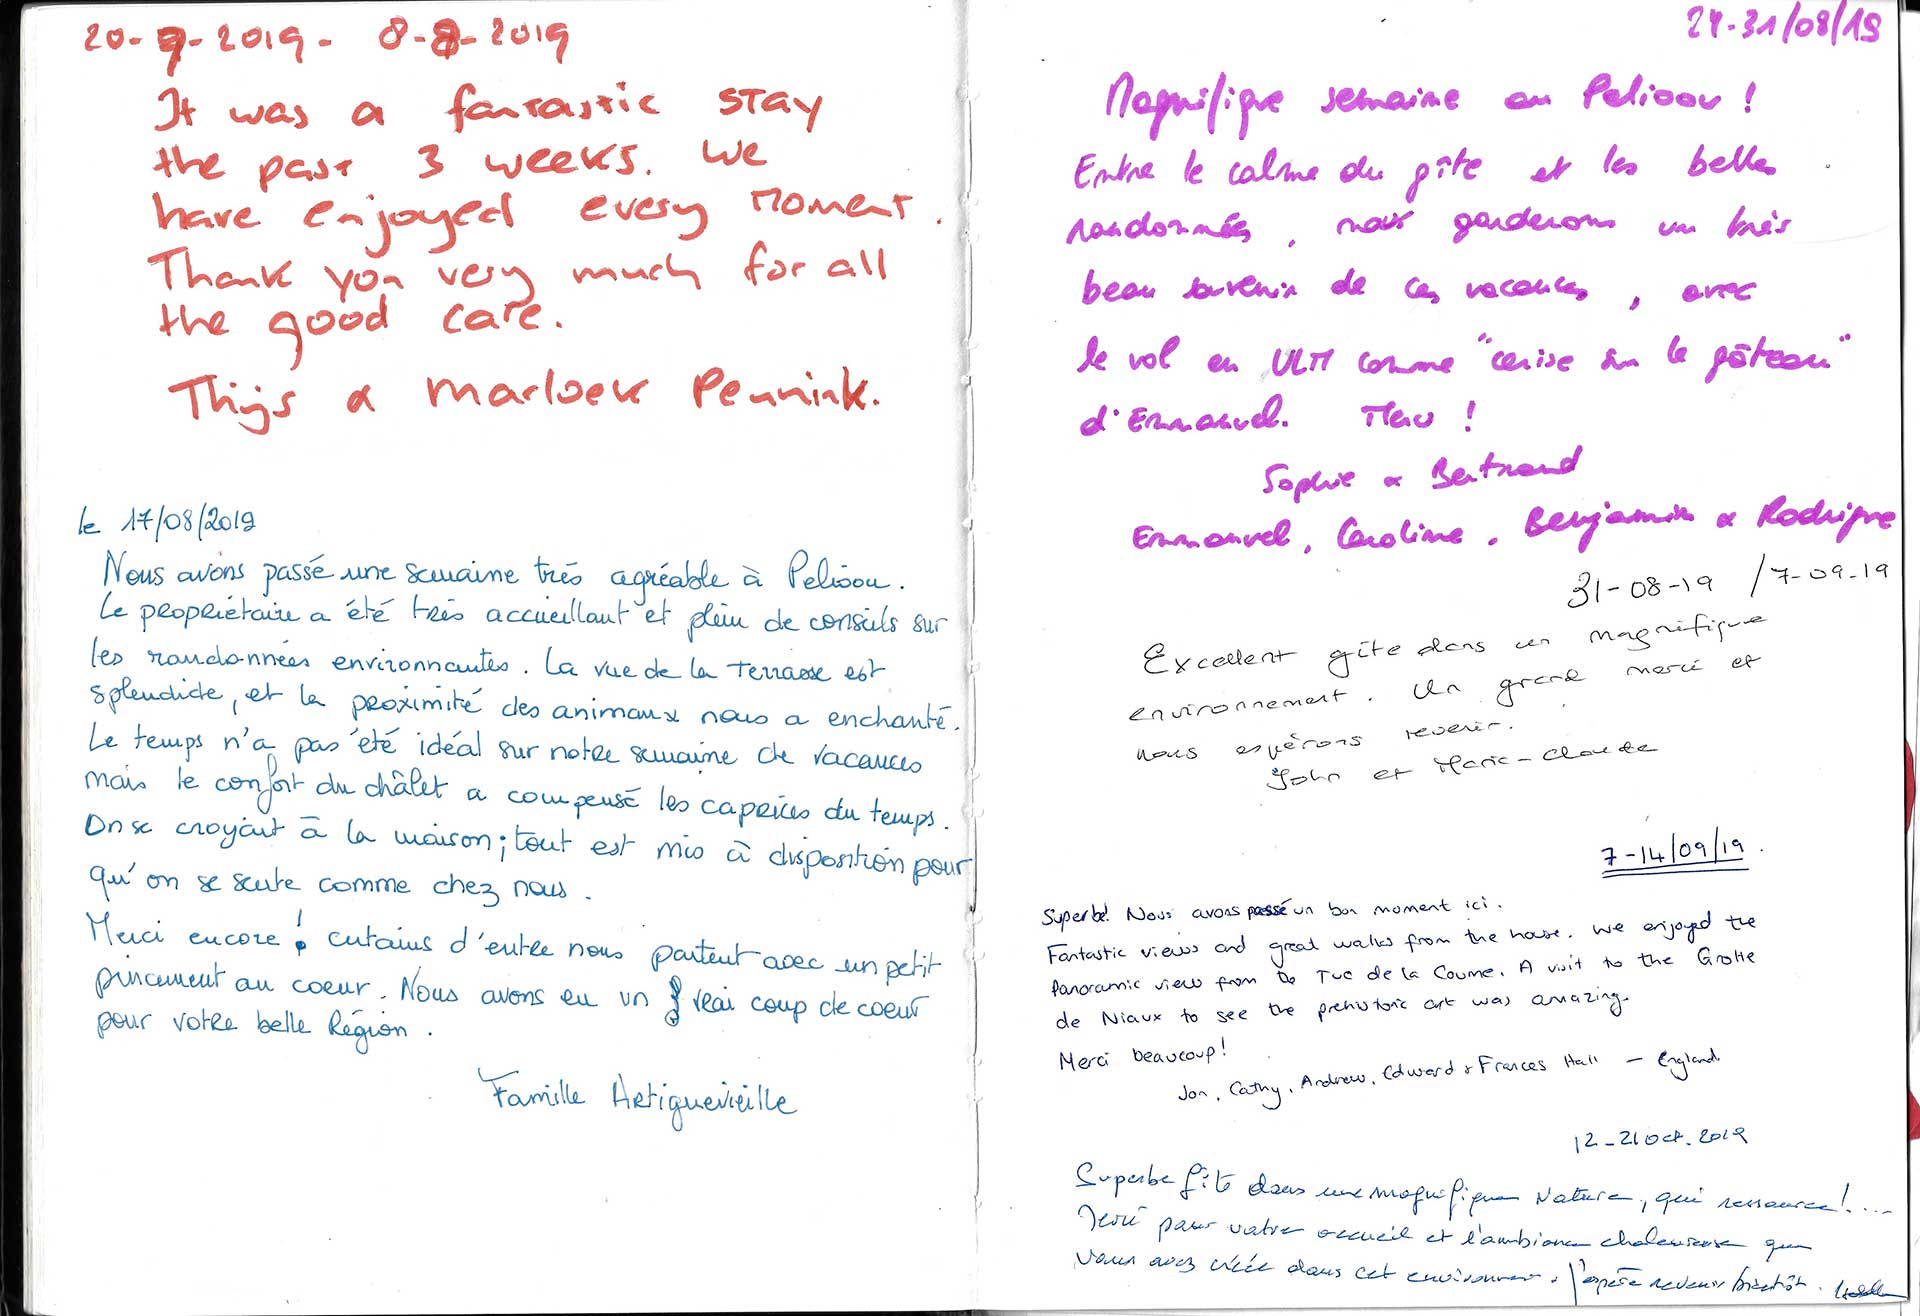 20-7-2019 - 8-8-2019
It was a fantastic stay
the past 3 weeks. We
have enjoyed every moment.
Thank you very much for all
the good care.
Thijs & Marloek Pennink.
le 17/08/2019
Nous avons passé une semaine très agréable à Pelioou.
Le propriétaire a été très accueillant et plein de conseils sur
les randonnées environnantes. La vue de la terrasse est
splendide, et la proximité des animaux nous a enchanté.
Le temps n'a pas été idéal sur notre semaine de vacances
mais le confort du châlet a compensé les caprices du temps.
On se croyait à la maison ; tout est mis à disposition pour
qu'on se sente comme chez nous.
Merci encore ! certains d'entre nous partent avec un petit
pincement au coeur. Nous avons eu un vrai coup de coeur
pour votre belle Région.
Famille Artiguevieille
24-31/08/19
Magnifique semaine au Pelioou !
Entre le calme du gîte et les belles
randonnées, nous garderons un très
beau souvenir de ces vacances, avec
le vol en ULM comme "cerise sur le gâteau"
d'Emmanuel. Merci !
Sophie & Bertrand
Emmanuel, Caroline, Benjamin & Rodrigue
31-08-19 / 7-09-19
Excellent gîte dans un magnifique
environnement. Un grand merci et
nous espérons revenir.
John et Marie-Claude
7-14/09/19.
Superbe! Nous avons passé un bon moment ici.
Fantastic views and great walks from the house. We enjoyed the
Panoramic view from the Tuc de la Coume. A visit to the Grotte
de Niaux to see the prehistoric art was amazing.
Merci beaucoup!
Jon, Cathy, Andrew, Edward & Frances Hall - England.
12-21 oct. 2019
Superbe gîte dans une magnifique Nature, qui ressource!....
Merci pour votre accueil et l'ambiance chaleureuse que
vous avez créée dans cet environnement. J'espère revenir bientôt.